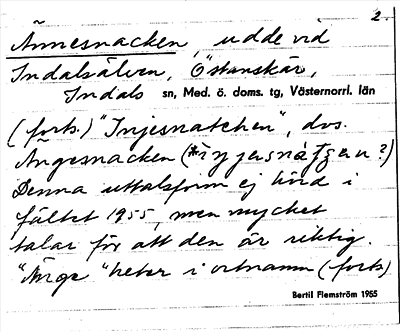 2.
Ännesnacken, udde vid
Indalsälven, Östanskär,
Indals sn, Med. ö. doms. tg, Västernorrl. län
(forts.) "Injesnatchen", dvs.
Ängesnacken (
Denna uttalsform ej hörd i
fältet 1955, men mycket
talar för att den är riktig.
"Änge" heter i ortnamn (forts)
Bertil Flemström 1955